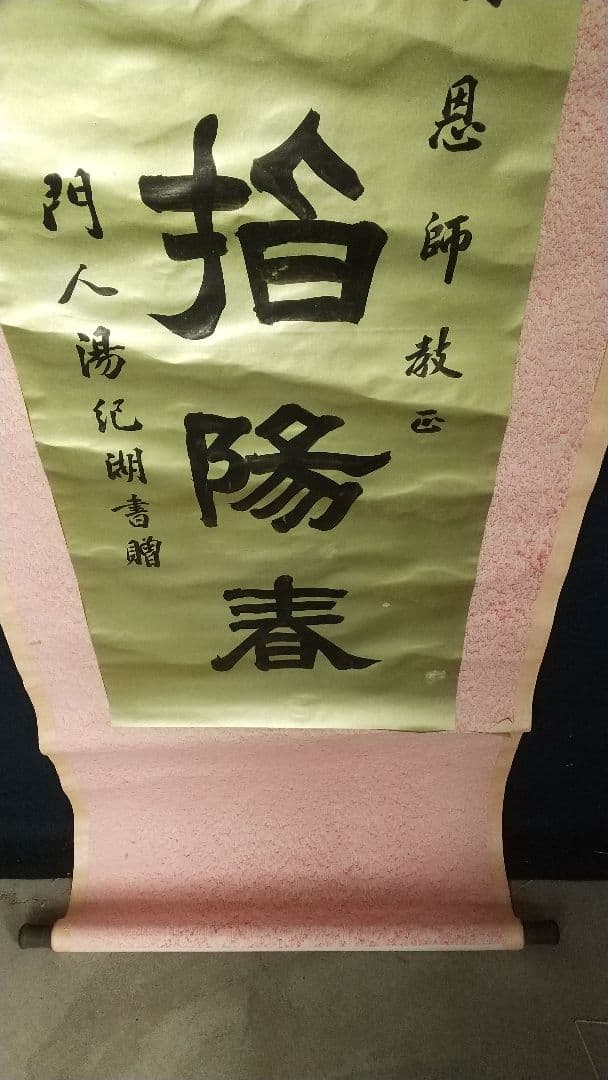 恩師教正
指陽春
門人湯紀湖書贈